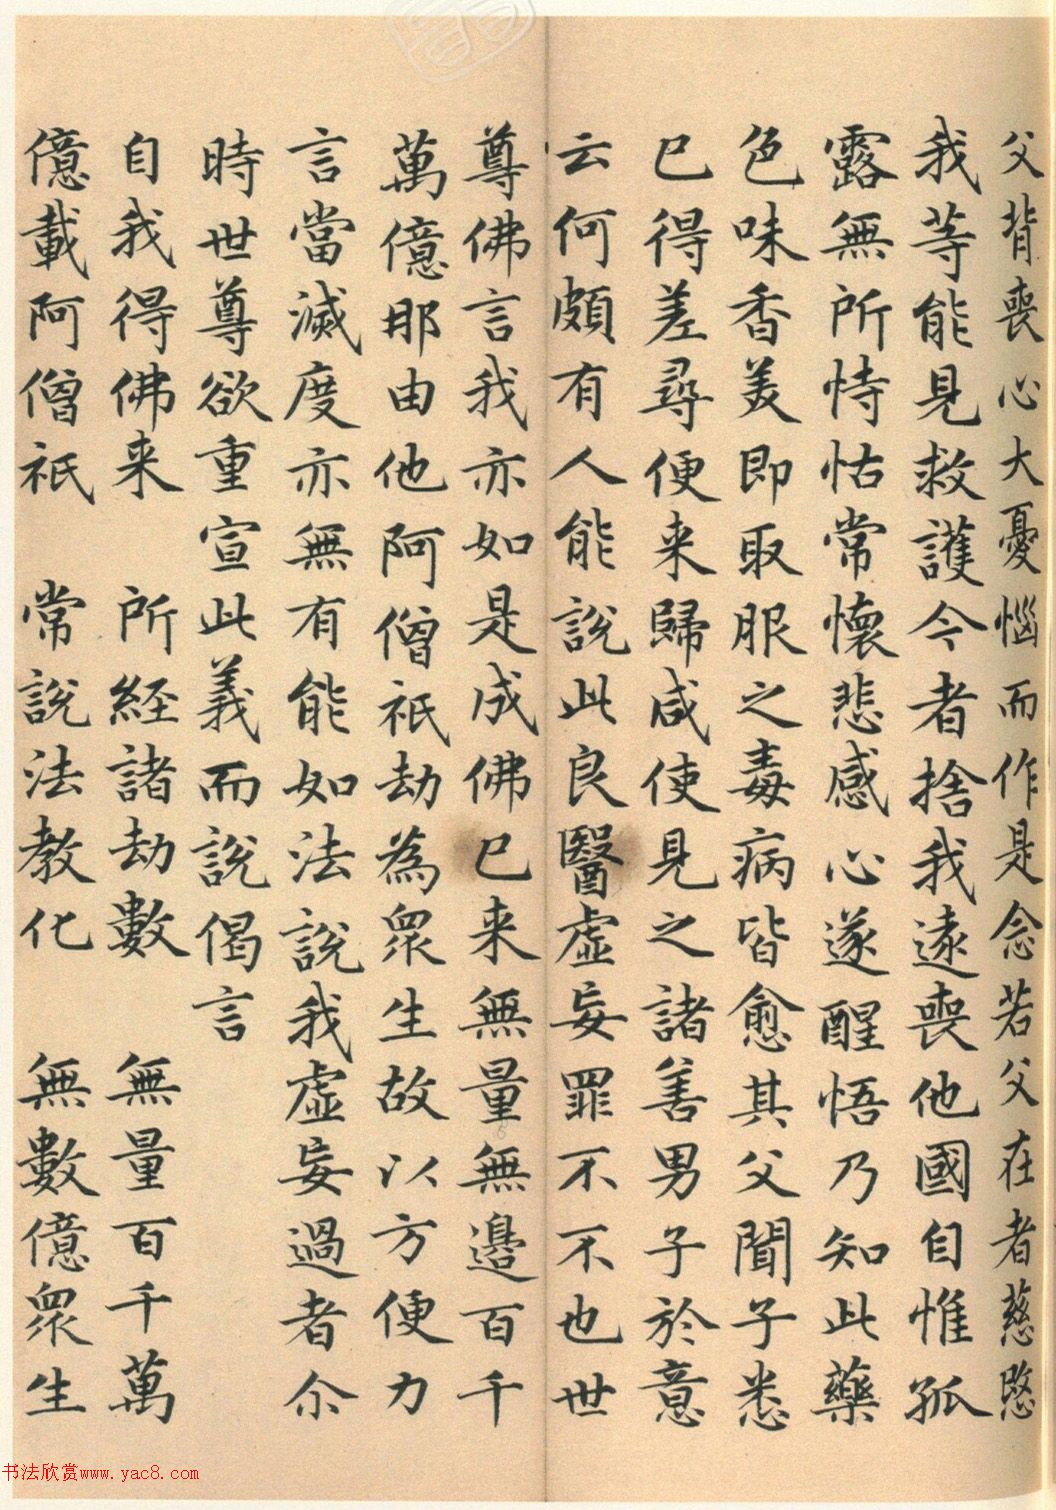 父背喪心大憂惱而作是念若父在者慈愍
我等能見救護今者捨我遠喪他國自惟孤
露無所恃怙常懷悲感心遂醒悟乃知此藥
色味香美即取服之毒病皆愈其父聞子悉
已得差尋便来歸咸使見之諸善男子於意
云何頗有人能說此良醫虛妄罪不不也世
尊佛言我亦如是成佛已来無量無邊百千
萬億那由他阿僧祇劫為眾生故以方便力
言當滅度亦無有能如法說我虛妄過者尒
時世尊欲重宣此義而說偈言
自我得佛来　所經諸劫數　無量百千萬
億載阿僧祇　常說法教化　無數億眾生
书法欣赏www.yac8.com